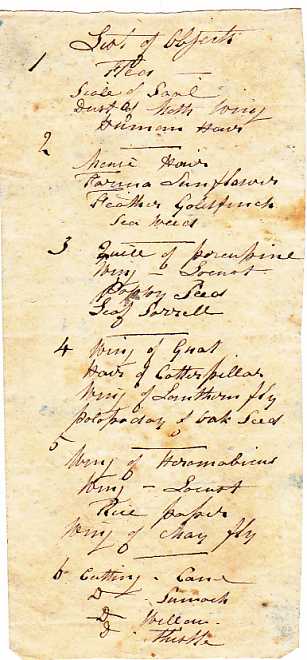 List of Objects
1 Flea —
Scale of Soal
Dust of Moth Wing
Human Hair
2
Mouse Hair
Farina Sunflower
Feather Goldfinch
Sea Weed
3 Quill of porcupine
Wing — Locust
Poppy Seed
Leaf Sorrell
4 Wing of Gnat
Hair of Catterpillar
Wing of Lanthern fly
of Oak Seed
5
Wing of
Wing — Locust
Rice paper
Wing of May fly
6 Cutting — Cane
D — Sumach
D — Willow
D — Thistle